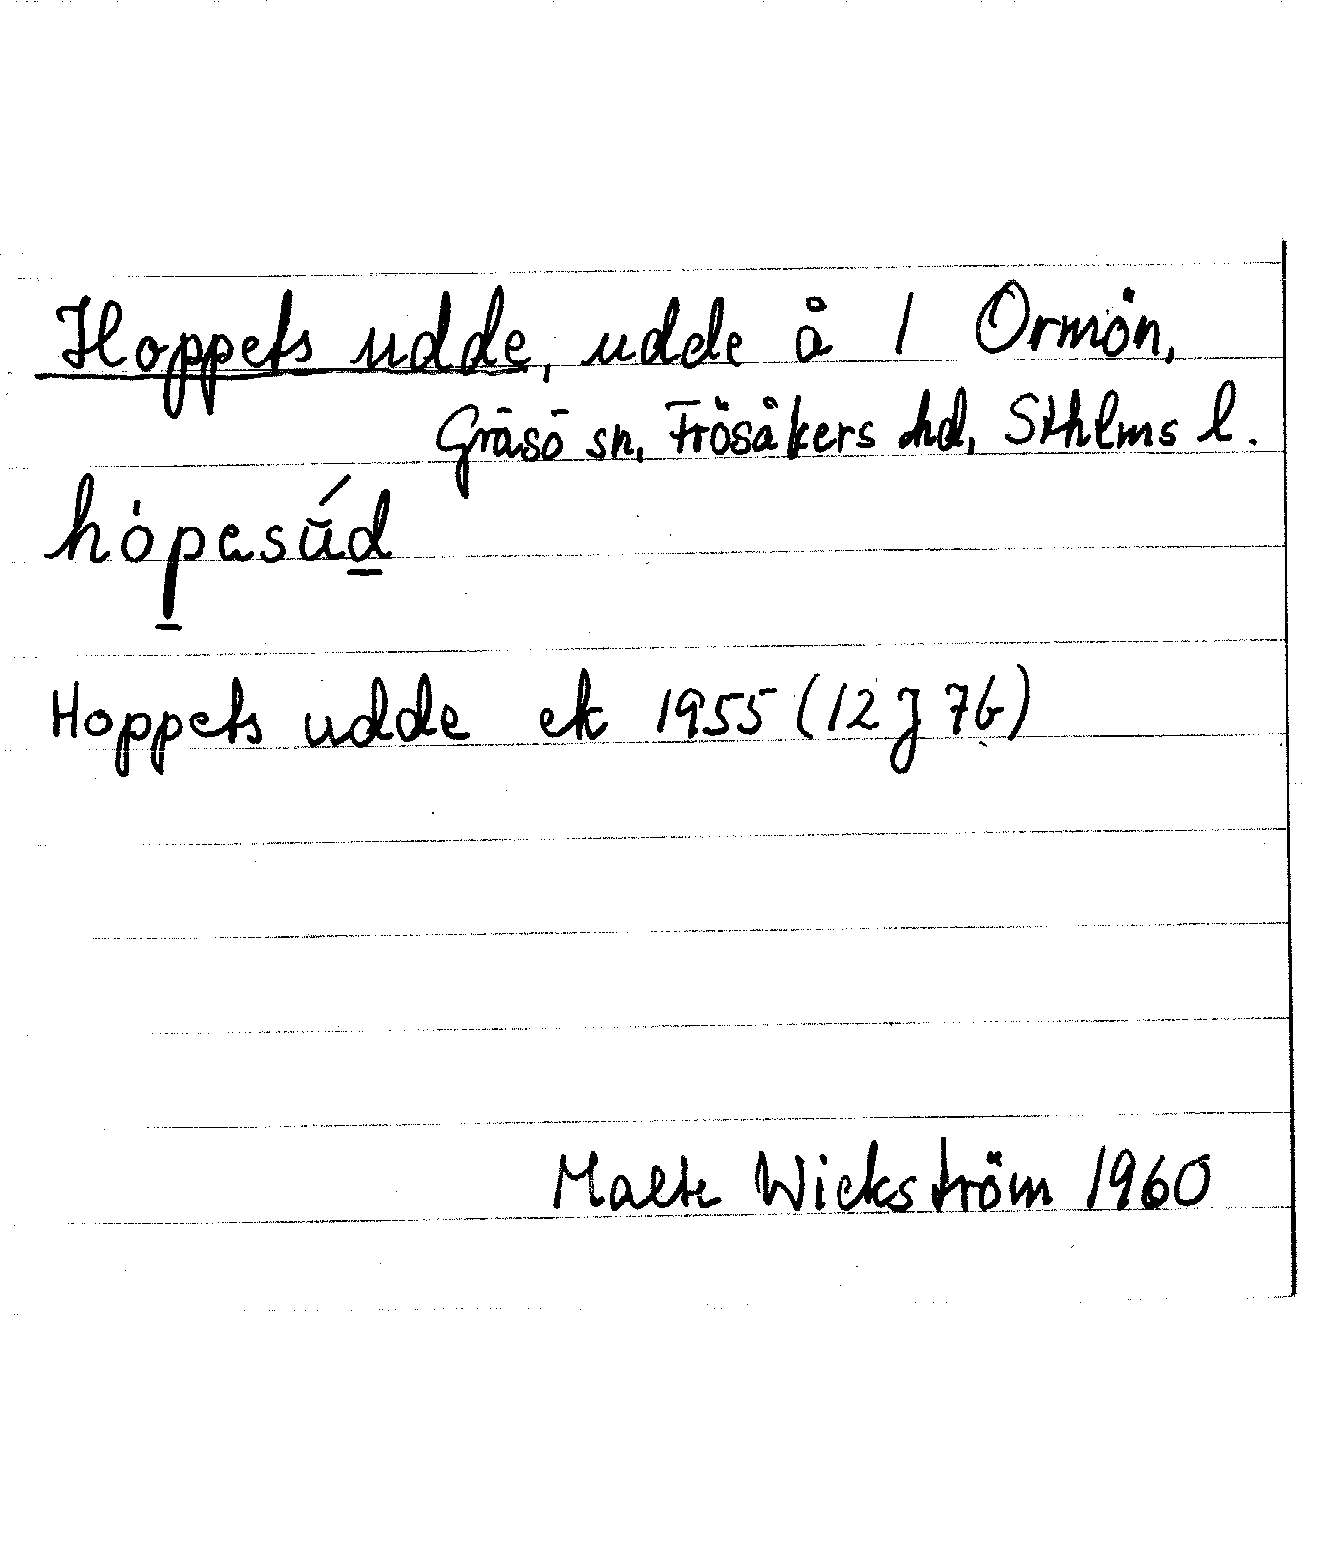 Hoppets udde, udde å 1 Ormön,
Gräsö sn, Frösåkers hd, Sthlms l.
hópasúd
Hoppets udde ek 1955 (12 J 7b)
Malte Wickström 1960